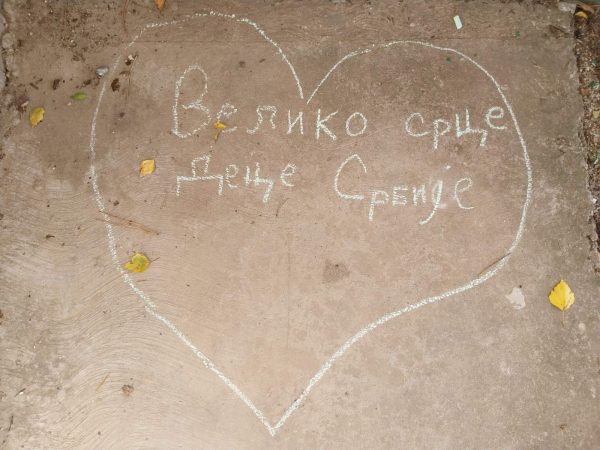 Велико срце
деце Србије